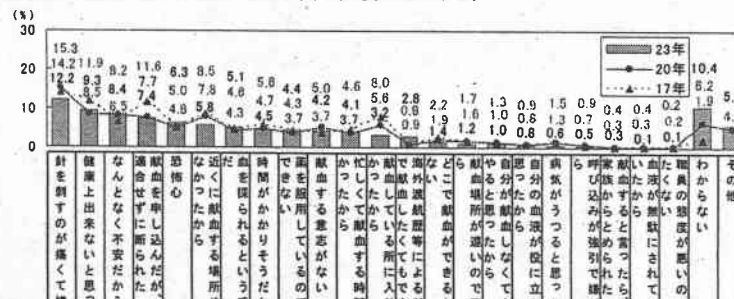 (%)
30
20
10
0
23年
20年
17年
15.3
14.2
12.2
11.9
9.3
8.5
8.2
8.4
6.5
11.6
7.7
7.4
6.3
5.0
4.8
8.5
7.8
5.8
5.1
4.6
4.3
5.8
4.7
4.5
4.4
4.3
3.7
5.0
4.2
3.7
4.6
4.1
3.7
8.0
5.6
3.2
2.8
0.9
0.9
2.2
1.9
1.4
1.7
1.6
1.2
1.3
1.0
1.0
0.9
0.8
0.8
1.5
1.3
0.6
0.9
0.7
0.5
0.4
0.3
0.3
0.4
0.3
0.1
0.2
0.2
0.1
10.4
6.2
1.9
針を刺すのが痛くて
健康上出来ないと思
なんとなく不安だか
献血を申し込んだが、
適合せずに断られた
恐怖心
近くに献血する場所
なかったから
血を採られるという
だ
時間がかかりそうだ
薬を服用しているの
できない
献血する意志がない
忙しくて献血する時
かったから
献血している所に入
かったから
海外渡航歴等による
で献血したくてもで
どこで献血ができる
ない
献血場所が遠いので
ら
自分が献血しなくて
やると思ったから
自分の血液が役に立
思ったから
病気がうつると思っ
呼び込みが強引で嫌
ら
献血すると言ったら
家族からとめられた
血液が無駄にされて
いたから
職員の態度が悪いの
たくない
わからない
その他